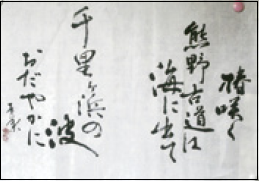 椿咲く
熊野古道は
海に出て
千里浜の
波
おだやかに